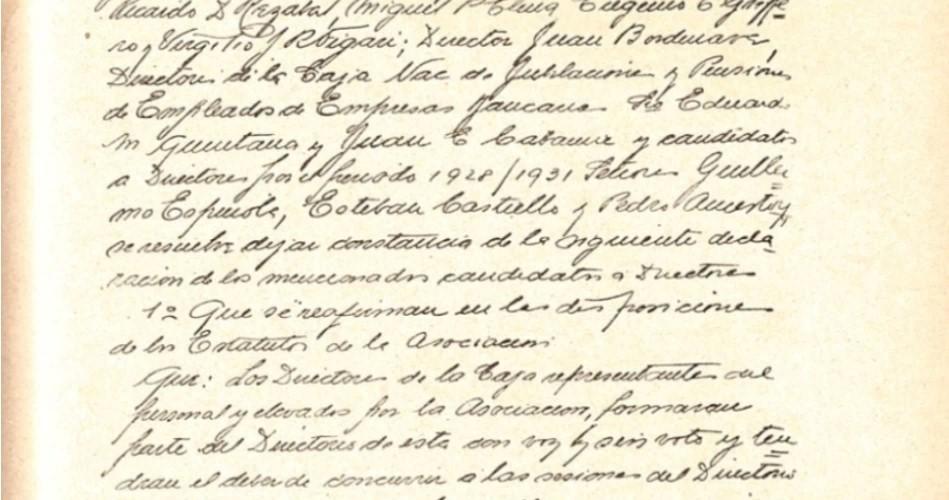 Ricardo D Rezabal, Miguel P Elena Eugenio C Griffe=
ro y Virgilio J Rvigari; Director Juan Bordenave,
Directores de la Caja Nac de Jubilaciones y Pensiones
de Empleados de Empresas Bancarias Srs Eduardo
M Quintana y Juan E y candidatos
a Directores por el periodo 1928/1931 Señores Guiller=
mo Espinola, Esteban Castiello y Pedro
se resuelve dejar constancia de la siguiente decla
racion de los mencionados candidatos a Directores
1º Que se reafirman en las disposiciones
de los Estatutos de la Asociacion
Que: Los Directores de la Caja representantes del
personal y elevados por la Asociacion, formaran
parte del Directorio de esta con voz y sin voto y ten=
dran el deber de concurrir a las sesiones del Directorio